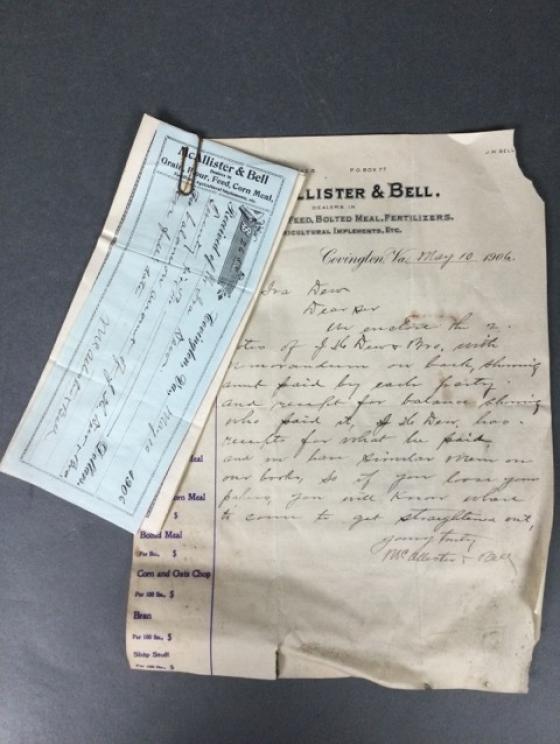 McAllister & Bell
Dealers in
Grain, Flour, Feed, Corn Meal,
Covington, Va. May 10 1906
Received of
Dollars
McAllister & Bell
P.O. BOX 77
J.M. BELL
LLISTER & BELL.
DEALERS IN
FEED, BOLTED MEAL, FERTILIZERS,
RICULTURAL IMPLEMENTS, ETC.
Covington, Va. May 10 1906.
Ira Dew
Dear Sir
We enclose the 2
of J H Dew & Bro, with
memorandum on back, showing
amt paid by each party.
and receipt for balance showing
who paid it, J H Dew, has
receipts for what he paid
and we have similar mem on
our books, so if you loose your
papers, you will know where
to come to get straightened out,
yours truly
McAllister & Bell
Meal
orn Meal
$
Bolted Meal
Per Bu., $
Corn and Oats Chop
Per 100 lbs., $
Bran
Per 100 lbs., $
Ship Stuff
Per 100 lbs., $